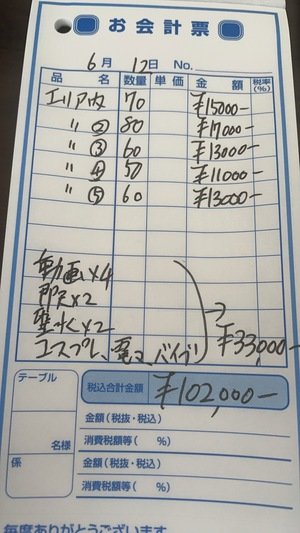 お会計票
6月 12日 No.
品名 数量 単価 金額 税率(%)
エリア内 70 ¥15000-
〃 ② 80 ¥17000-
〃 ③ 60 ¥13000-
〃 ④ 50 ¥11000-
〃 ⑤ 60 ¥13000-
動画×4
即尺×2
聖水×2
コスプレ、電マ、バイブ ¥33,000-
テーブル
税込合計金額 ¥102,000-
金額(税抜・税込)
名様 消費税額等( %)
係 金額(税抜・税込)
消費税額等( %)
毎度ありがとうございます